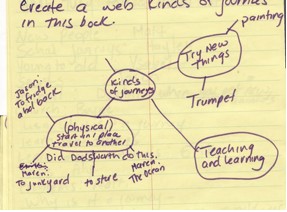 Create a web Kinds of journies
in this book.
painting
Try New
things
Kinds
of journeys
Trumpet
Jason:
To fridge
and back
(physical)
Start in 1 place
travel to another
Did Dodsworth do this.
Karen:
To junkyard
to store
Karen:
The Ocean
Teaching
and learning